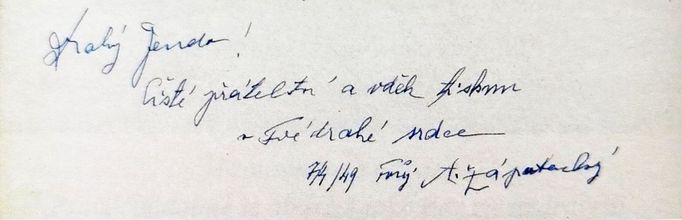 Drahý Jenda!
Čisté přátelství a vděk tisknu
v Tvé drahé srdce
7/4/49 Tvůj A. Zápotocký